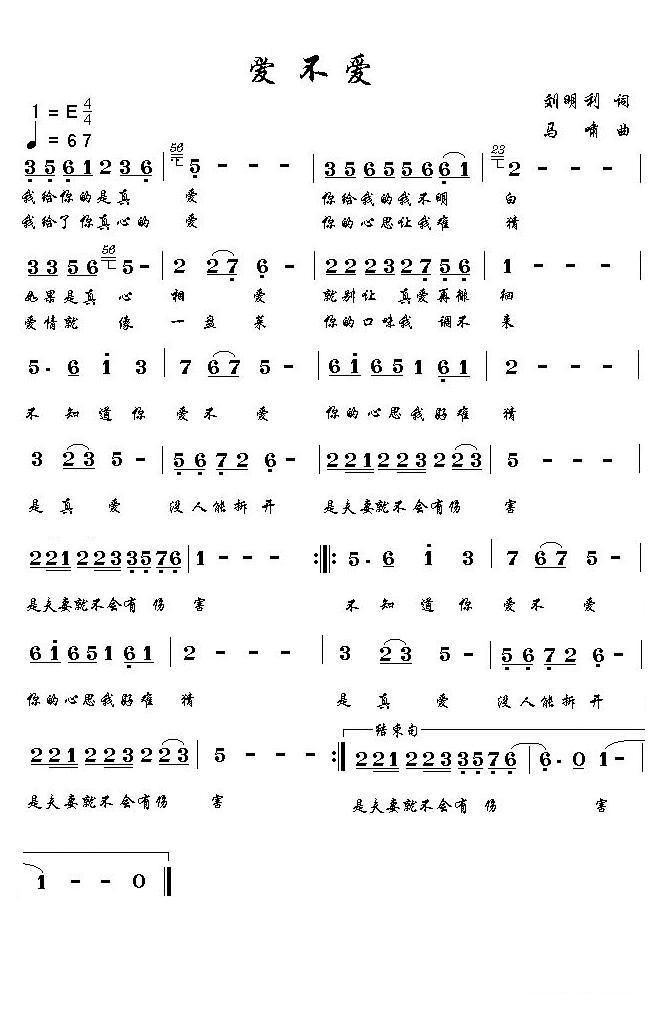 爱不爱
1 = E 4/4
♩ = 67
刘明利 词
马啸 曲
3 5 6 1 2 3 6 | 56 5 - - - | 3 5 6 5 5 6 6 1 | 23 2 - - - |
我给你的是真 爱 你给我的我不明 白
我给了你真心的 爱 你的心思让我难 猜
3 3 5 6 56 5 - | 2 2 7 6 - | 2 2 2 3 2 7 5 6 | 1 - - - |
如果是真 心 相 爱 就别让 真爱再徘 徊
爱情就 像 一 盘 菜 你的口味我 调不 来
5. 6 i 3 | 7 6 7 5 - | 6 i 6 5 1 6 1 | 2 - - - |
不 知 道 你 爱 不 爱 你的心思我好难 猜
3 2 3 5 - | 5 6 7 2 6 - | 2 2 1 2 2 3 2 2 3 | 5 - - - |
是 真 爱 没人能拆开 是夫妻就不会有伤 害
2 2 1 2 2 3 3 5 7 6 | 1 - - - :‖: 5. 6 i 3 | 7 6 7 5 - |
是夫妻就不会有 伤 害 不 知 道 你 爱 不 爱
6 i 6 5 1 6 1 | 2 - - - | 3 2 3 5 - | 5 6 7 2 6 - |
你的心思我好难 猜 是 真 爱 没人能拆开
结束句
2 2 1 2 2 3 2 2 3 | 5 - - - :‖ 2 2 1 2 2 3 3 5 7 6 | 6. 0 1 - |
是夫妻就不会有伤 害 是夫妻就不会有 伤 害
1 - - 0 ‖